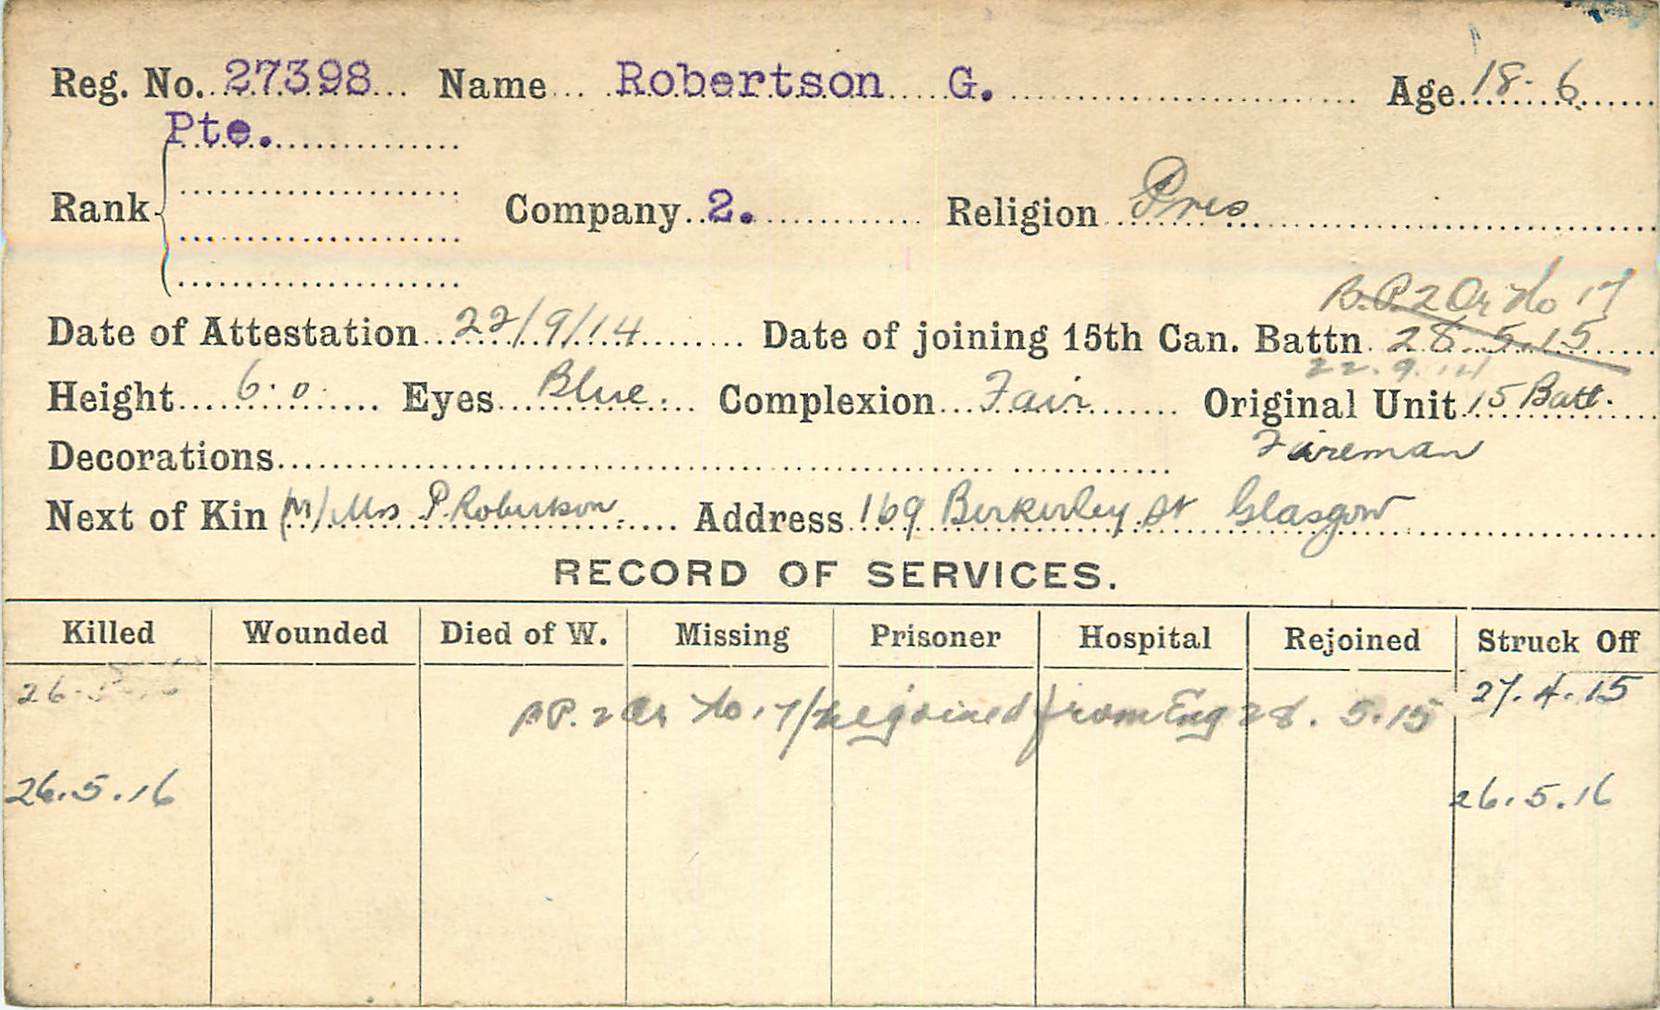 Reg. No. 27398 Name Robertson G. Age 18-6
Pte.
Rank Company 2. Religion Pres
B.P. 2 Or No 17
Date of Attestation 22/9/14 Date of joining 15th Can. Battn 28.5.15
22.9.14
Height 6.0 Eyes Blue. Complexion Fair Original Unit 15 Batt.
Decorations Fireman
Next of Kin (M) Mrs P. Robertson. Address 169 Berkerley St Glasgow
RECORD OF SERVICES.
Killed Wounded Died of W. Missing Prisoner Hospital Rejoined Struck Off
26. 27.4.15
BP. 2 Or No 17/ Rejoined from Eng 28.5.15
26.5.16 26.5.16